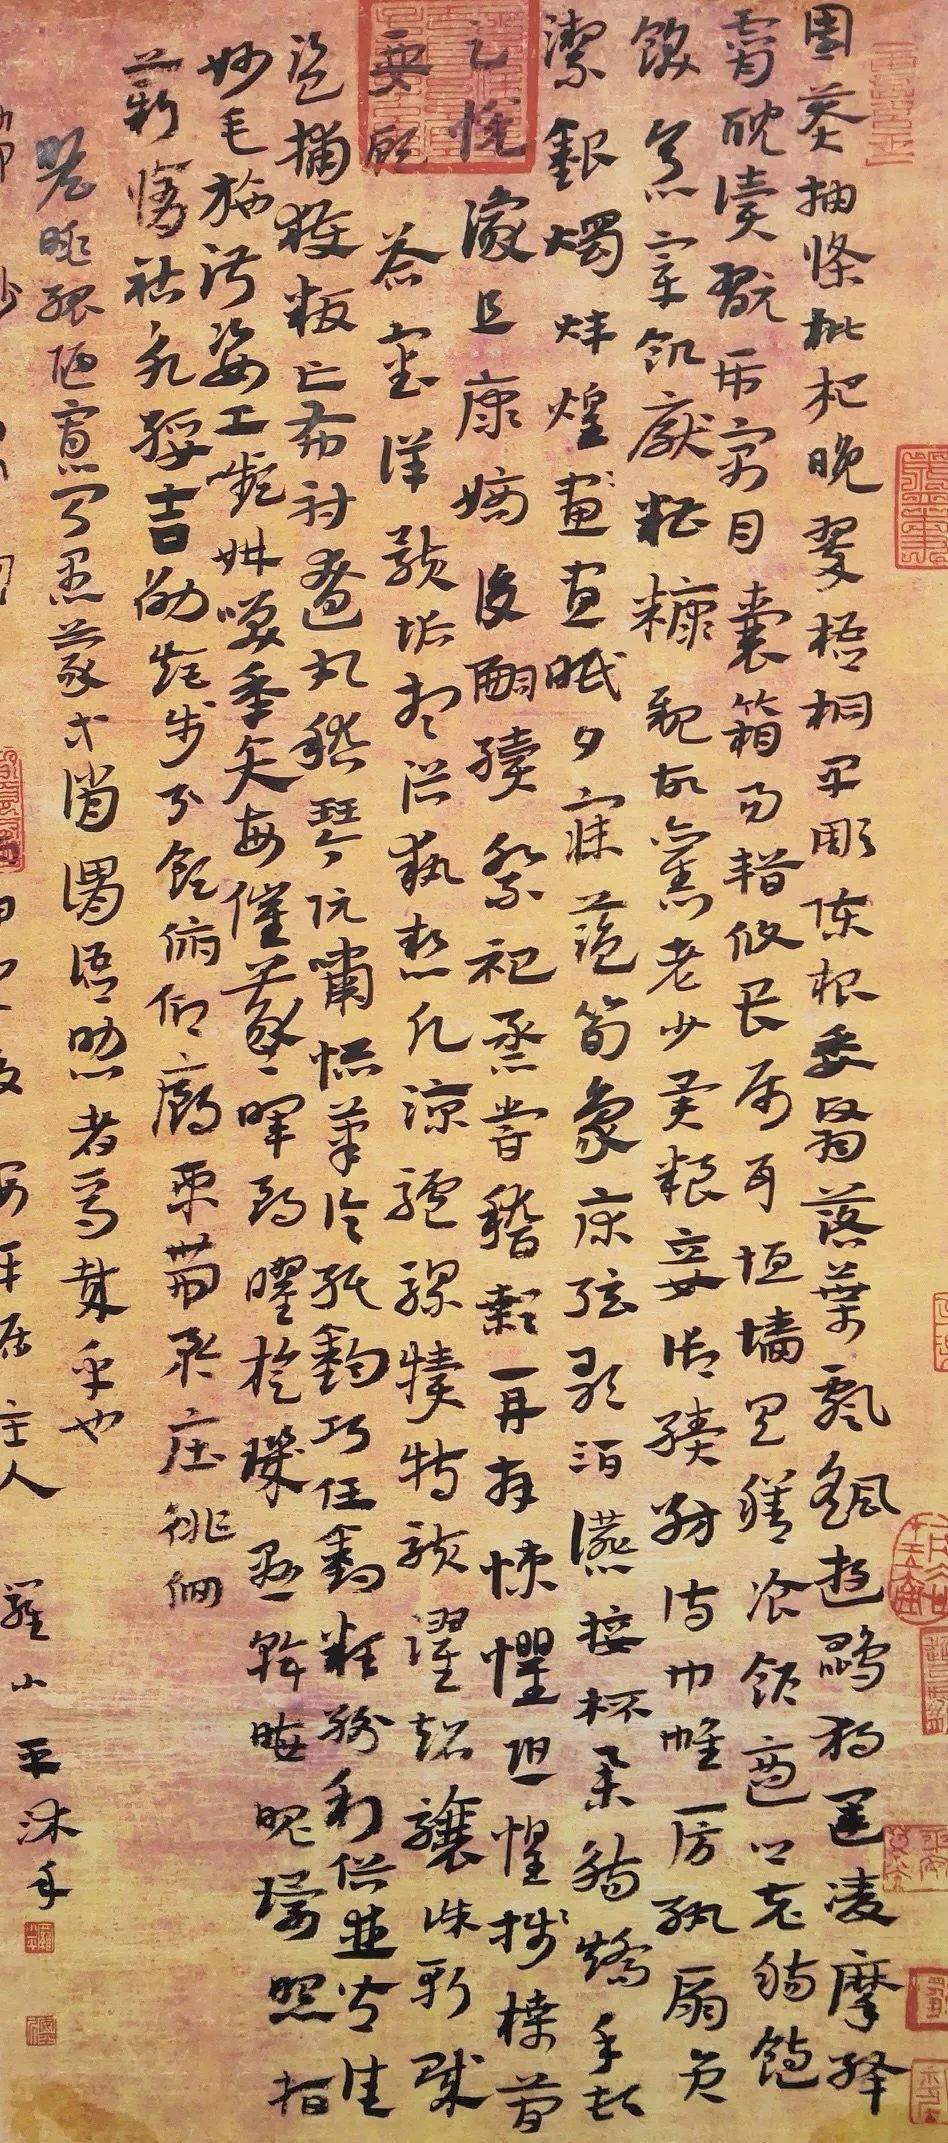 園莽抽條枇杷晚翠梧桐早彫陳根委翳落葉飄颻遊鵾獨運凌摩絳
霄耽讀翫市寓目囊箱易輶攸畏屬耳垣墻具膳飡飯適口充腸飽
飫烹宰飢厭糟糠親戚故舊老少異粮妾御績紡侍巾帷房紈扇員
潔銀燭煒煌晝眠夕寐藍筍象床弦歌酒讌接杯舉觴矯手頓
足悅豫且康嫡後嗣續祭祀蒸嘗稽顙再拜悚懼恐惶牋牒簡
要顧答審詳骸垢想浴執熱願涼驢騾犢特駭躍超驤誅斬賊
盜捕獲叛亡布射遼丸嵇琴阮嘯恬筆倫紙鈞巧任釣釋紛利俗並皆佳
妙毛施淑姿工顰妍笑年矢每催羲暉朗曜旋璣懸斡晦魄環照指
薪修祜永綏吉劭矩步引領俯仰廊廟束帶矜庄徘徊
瞻眺孤陋寡聞愚蒙等誚謂語助者焉哉乎也
主人羅小平沐手